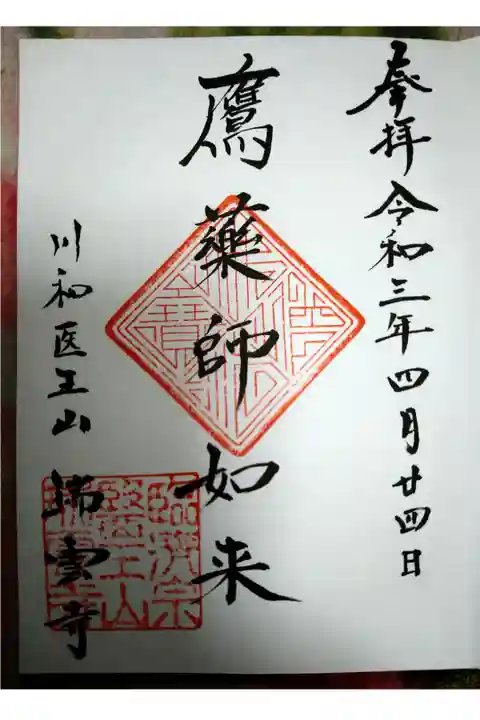 奉拝 令和三年四月廿四日
鷹藥師如来
川和医王山 瑞雲寺
佛法僧寶
臨濟宗
醫王山
瑞雲寺